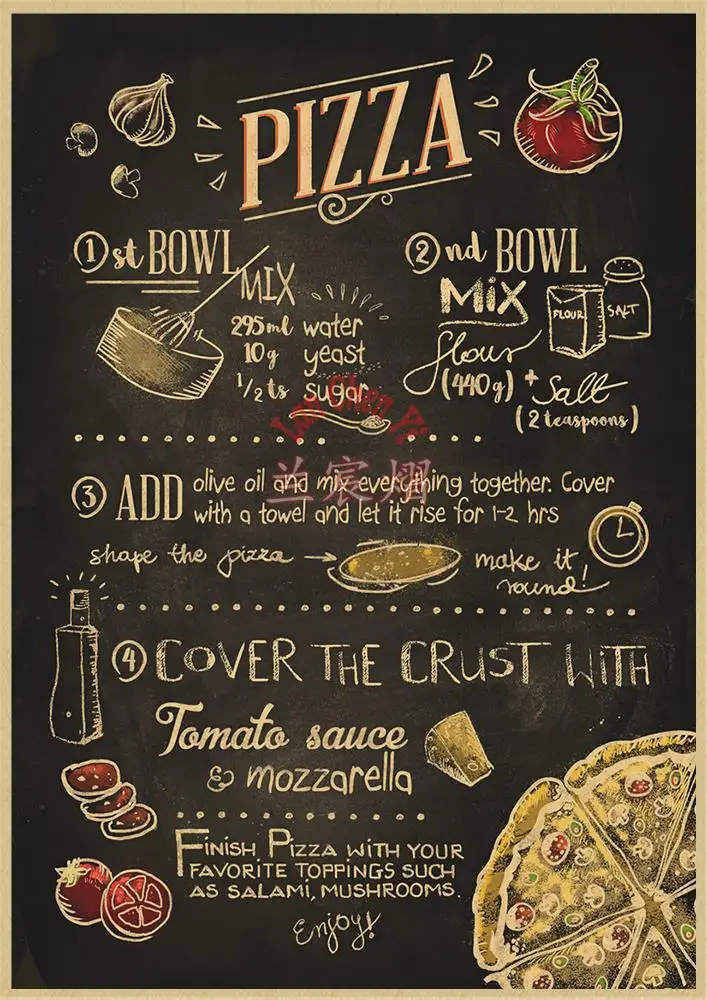 PIZZA
1st BOWL
MIX
295ml water
10g yeast
1/2 ts sugar
2nd BOWL
MiX
FLOUR
SALT
flour
(440g) + Salt
(2 teaspoons)
Lan Chen Yi
兰宸熠
3 ADD olive oil and mix everything together. Cover
with a towel and let it rise for 1-2 hrs
shape the pizza → make it
round!
4 COVER THE CRUST WiTH
Tomato sauce
& mozzarella
FINISH PIZZA WITH YOUR
FAVORITE TOPPINGS SUCH
AS SALAMI, MUSHROOMS.
Enjoy!